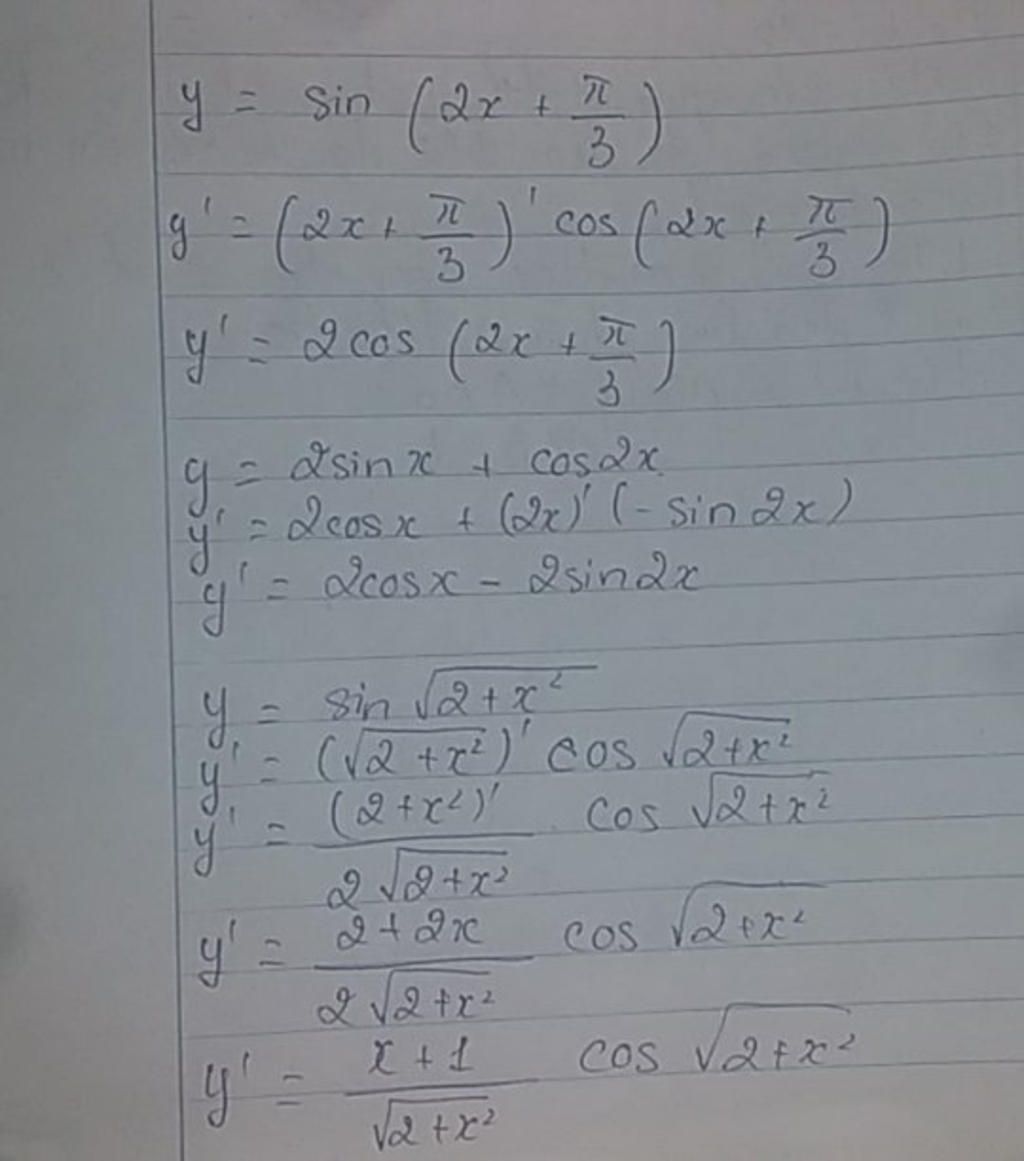 y = sin (2x + π/3)
y' = (2x + π/3)' cos (2x + π/3)
y' = 2cos (2x + π/3)
y = 2sin x + cos2x
y' = 2cosx + (2x)' (- sin 2x)
y' = 2cosx - 2sin2x
y = sin √(2 + x²)
y' = (√(2 + x²))' cos √(2+x²)
y' = (2+x²)' / 2√(2+x²) cos √(2+x²)
y' = 2 + 2x / 2√(2+x²) cos √(2+x²)
y' = x + 1 / √(2+x²) cos √(2+x²)